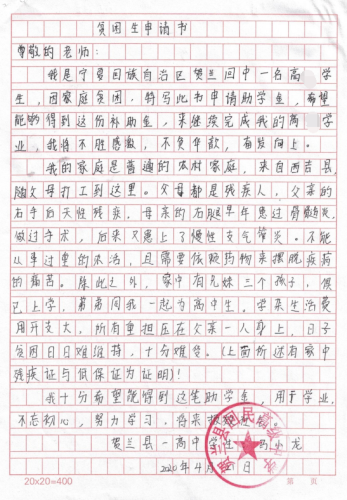 贫困生申请书
尊敬的老师：
我是宁夏回族自治区贺兰回中一名高 学
生，因家庭贫困，特写此书申请助学金，希望
能够得到这份补助金，来继续完成我的高 学
业，我将不胜感激，不负年歉，奋发向上。
我的家庭是普通的农村家庭，来自西吉县，
随父母打工到这里。父母都是残疾人，父亲的
右手后天性残疾，母亲的右腿早年患过骨髓炎，
做过手术，后来又患上了慢性支气管炎。不能
从事过重的农活，且需要依赖药物来摆脱疾病
的痛苦。除此之外，家中有兄妹三个孩子，俱
已上学，弟弟同我一起为高中生。学杂生活费
用开支大，所有重担压在父亲一人身上，日子
贫困日日难维持，十分难熬。（上面所述有家中
残疾证与低保证为证明）！
我十分希望能得到这笔助学金，用于学业，
不忘初心，努力学习，将来
贺兰县一高中学 小龙
2020年4月 日
20x20=400
第 页